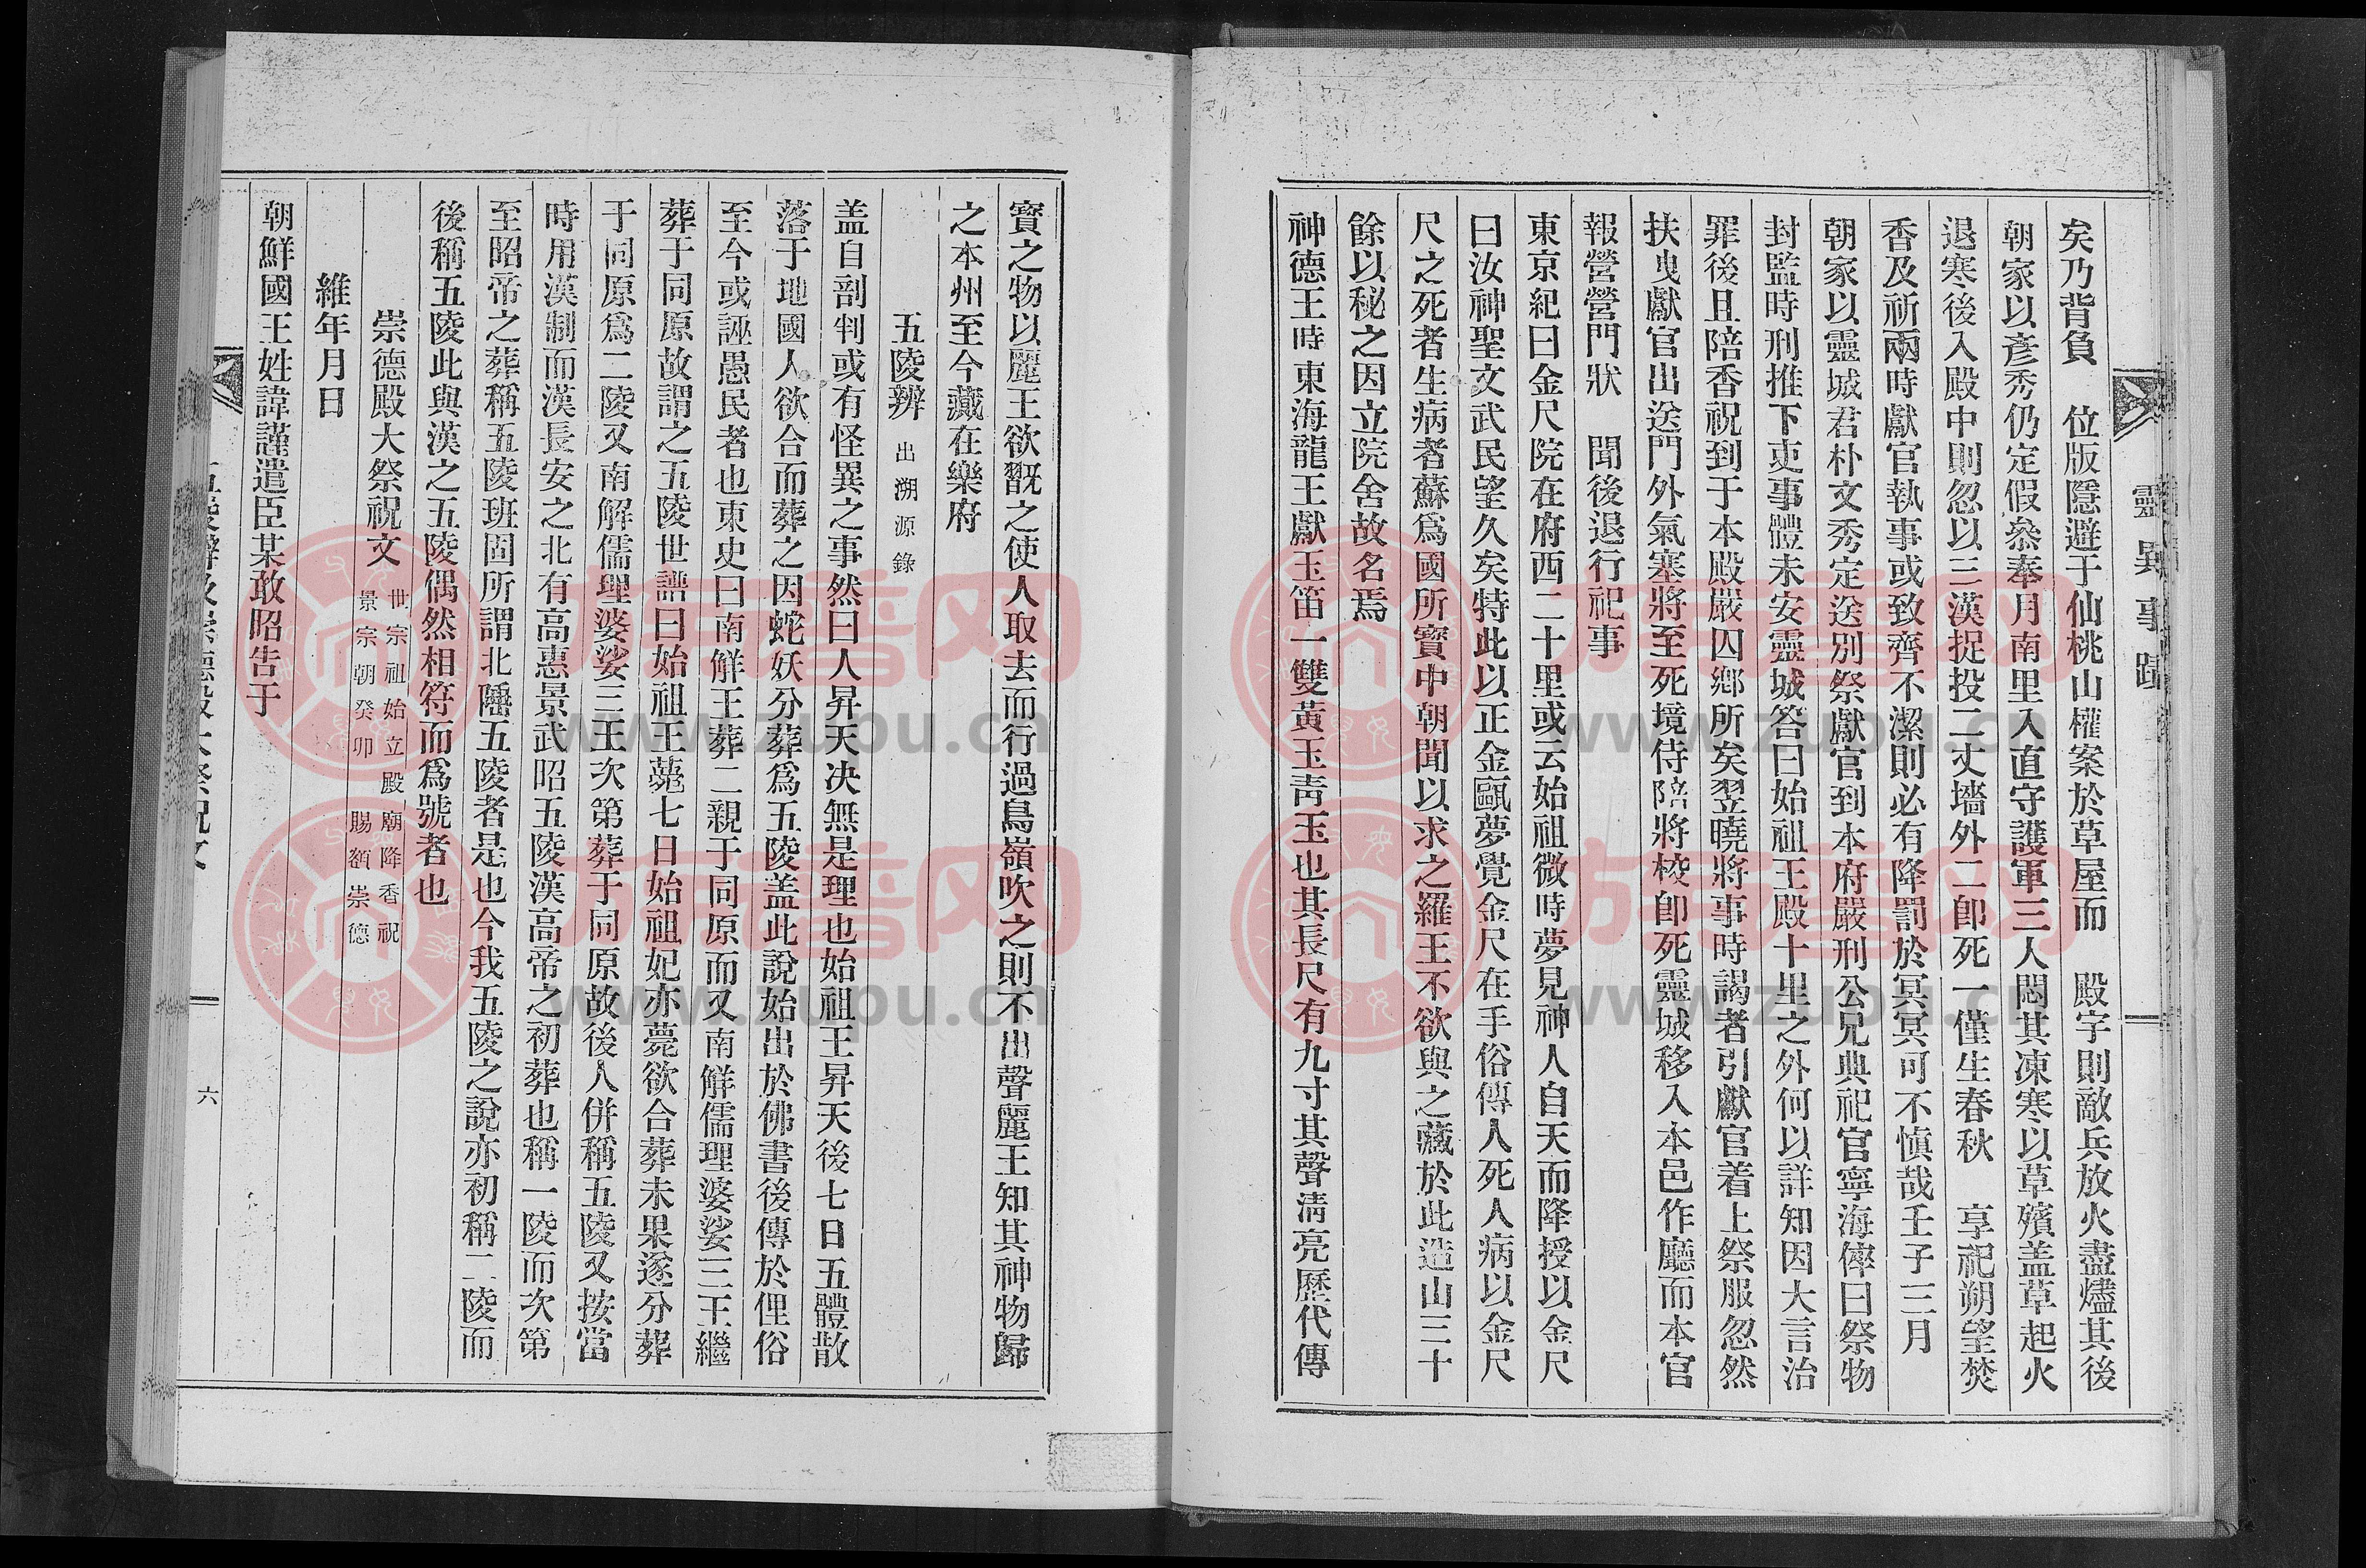 靈異事蹟
矣乃背負 位版隱避于仙桃山權案於草屋而 殿宇則敵兵放火盡燼其後
朝家以彥秀仍定假叅奉月南里入直守護軍三人悶其凍寒以草殯盖草起火
退寒後入殿中則忽以三漢捉投二丈墻外二卽死一僅生春秋 享祀朔望焚
香及祈兩時獻官執事或致齊不潔則必有降罰於冥冥可不愼哉壬子三月
朝家以靈城君朴文秀定送別祭獻官到本府嚴刑公兄典祀官寧海倅曰祭物
封監時刑推下吏事體未安靈城答曰始祖王殿十里之外何以詳知因大言治
罪後且陪香祝到于本殿嚴囚鄕所矣翌曉將事時謁者引獻官着上祭服忽然
扶曳獻官出送門外氣塞將至死境侍陪將校卽死靈城移入本邑作廳而本官
報營營門狀 聞後退行祀事
東京紀曰金尺院在府西二十里或云始祖微時夢見神人自天而降授以金尺
曰汝神聖文武民望久矣特此以正金甌夢覺金尺在手俗傳人死人病以金尺
尺之死者生病者蘇爲國所寶中朝聞以求之羅王不欲與之藏於此造山三十
餘以秘之因立院舍故名焉
神德王時東海龍王獻玉笛一雙黃玉靑玉也其長尺有九寸其聲淸亮歷代傳
寶之物以麗王欲翫之使人取去而行過鳥嶺吹之則不出聲麗王知其神物歸
之本州至今藏在樂府
五陵辨 出溯源錄
盖自剖判或有怪異之事然曰人昇天决無是理也始祖王昇天後七日五體散
落于地國人欲合而葬之因蛇妖分葬爲五陵盖此說始出於佛書後傳於俚俗
至今或誣愚民者也東史曰南解王葬二親于同原而又南解儒理婆娑三王繼
葬于同原故謂之五陵世譜曰始祖王薨七日始祖妃亦薨欲合葬未果遂分葬
于同原爲二陵又南解儒理婆娑三王次第葬于同原故後人併稱五陵又按當
時用漢制而漢長安之北有高惠景武昭五陵漢高帝之初葬也稱一陵而次第
至昭帝之葬稱五陵班固所謂北隱五陵者是也今我五陵之說亦初稱二陵而
後稱五陵此與漢之五陵偶然相符而爲號者也
崇德殿大祭祝文 世宗祖始立殿廟降香祝
景宗朝癸卯 賜額崇德
維年月日
朝鮮國王姓諱謹遣臣某敢昭告于
六
族譜网
www.zupu.cn
族譜网
www.zupu.cn
族譜网
www.zupu.cn
族譜网
www.zupu.cn